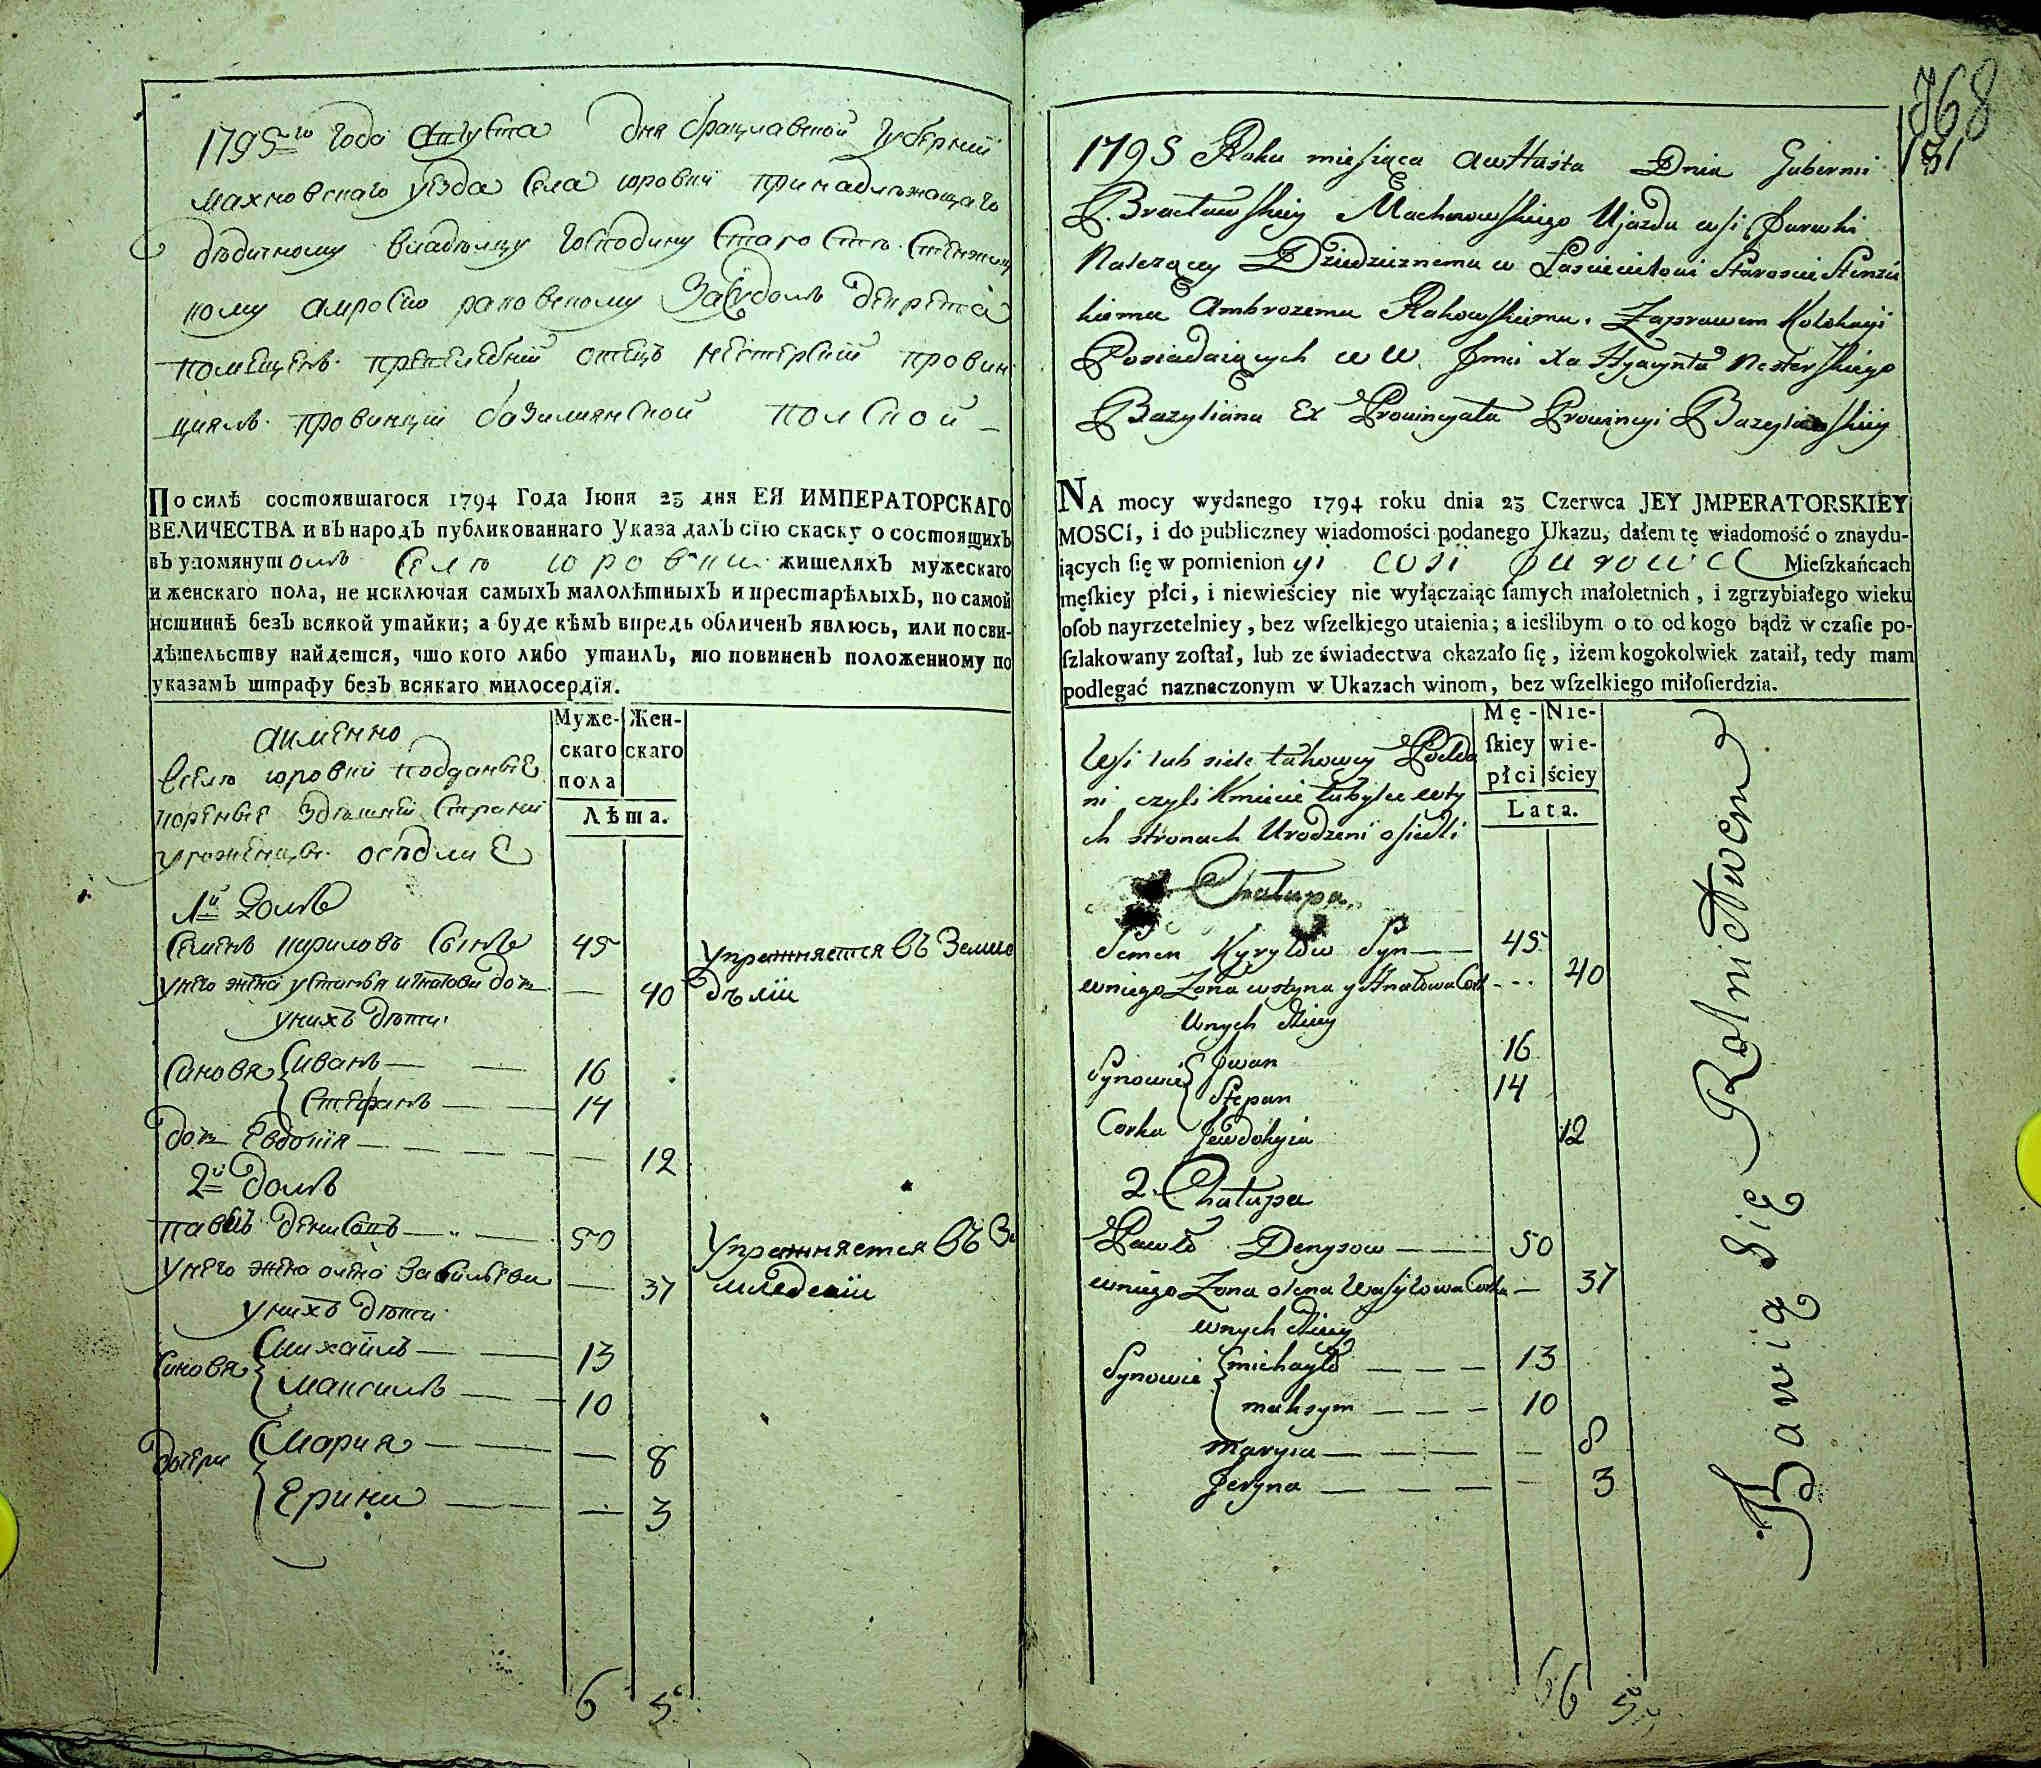 1795го Года Августа дня брацлавской Губернии
махновского уезда села юровки принадлежащаго
дедичному владелцу Господину Старосте Стенжиц
кому амросию раковскому
помещенъ отецъ нестерский провин
циялъ провинции базилиянской полской
По силѣ состоявшагося 1794 Года Іюня 23 дня ЕЯ ИМПЕРАТОРСКАГО
ВЕЛИЧЕСТВА и въ народъ публикованнаго Указа далъ сію скаску о состоящихъ
въ упомянутомъ Селе юровки жителяхъ мужескаго
и женскаго пола, не исключая самыхъ малолѣтныхъ и престарѣлыхъ, по самой
исшиннѣ безъ всякой утайки; а буде кѣмъ впредь обличенъ явлюсь, или по сви-
дѣтельству найдется, что кого либо утаилъ, то повиненъ положенному по
указамъ штрафу безъ всякаго милосердія.
аименно
Муже-
скаго
пола
Жен-
скаго
Лѣта.
вселе юровки подданые
здешней страни
уроженцы оседлие
1й Домъ
Семенъ кириловъ Сынъ 45 упражняется въ Земле
унего жена устиня игнатова доч 40 дѣлии
унихъ дети
Синовя Иванъ 16
Стефанъ 14
доч Евдокия 12
2й домъ
павелъ денисовъ 50 Упражняется въ Зе
Унего жена олена Василева 37 мледелии
унихъ дети
Синовя Михайлъ 13
Максимъ 10
дочери Мария 8
Ерина 3
6 5
768
131
1795 Roku miesiąca awHusta Dnia Gubernii
Bracławskiey Machnowskiego Ujazdu wsi Jurowki
Należącey Dziedzicznemu w Łascicielowi Staroscie Stenżic
kiemu Ambrozemu Rakowskiemu. Zaprawem Kolokacyi
Posiadaiących W W. Jmci Xa Hyacynta Nesterskiego
Bazyliana Ex Prowincyała Prowincyi Bazylianskiey
NA mocy wydanego 1794 roku dnia 23 Czerwca JEY JMPERATORSKIEY
MOSCI, i do publiczney wiadomości podanego Ukazu, dałem tę wiadomość o znaydu-
iących ſię w pomienionyi wsi Jurowce Mieſzkańcach
męſkiey płci, i niewieściey nie wyłączaiąc ſamych małoletnich, i zgrzybiałego wieku
oſob nayrzetelniey, bez wſzelkiego utaienia; a ieślibym o to od kogo bądź w czaſie po-
ſzlakowany zoſtał, lub ze świadectwa okazało ſię, iżem kogokolwiek zataił, tedy mam
podlegać naznaczonym w Ukazach winom, bez wſzelkiego miłoſierdzia.
Mę-
ſkiey
płci
Nie-
wie-
ściey
Lata.
Wsi lub siele takowey Podda
ni czyli Kmiecie tubylce wty
ch stronach Urodzeni osiedli
Chałupa
Semen Kyryłow Syn 45
wniego Zona wstyna yHnatowa Cork 40
Unych dzieci
Synowie Jwan 16
Stepan 14
Corka Jewdokyia 12
2 Chałupa
Pawło Denysow 50
wniego Zona olena Wasylowa Corka 37
wnych dzieci
Synowie michayło 13
maksym 10
Maryia 8
Jeryna 3
Bawią się Rolnictwem